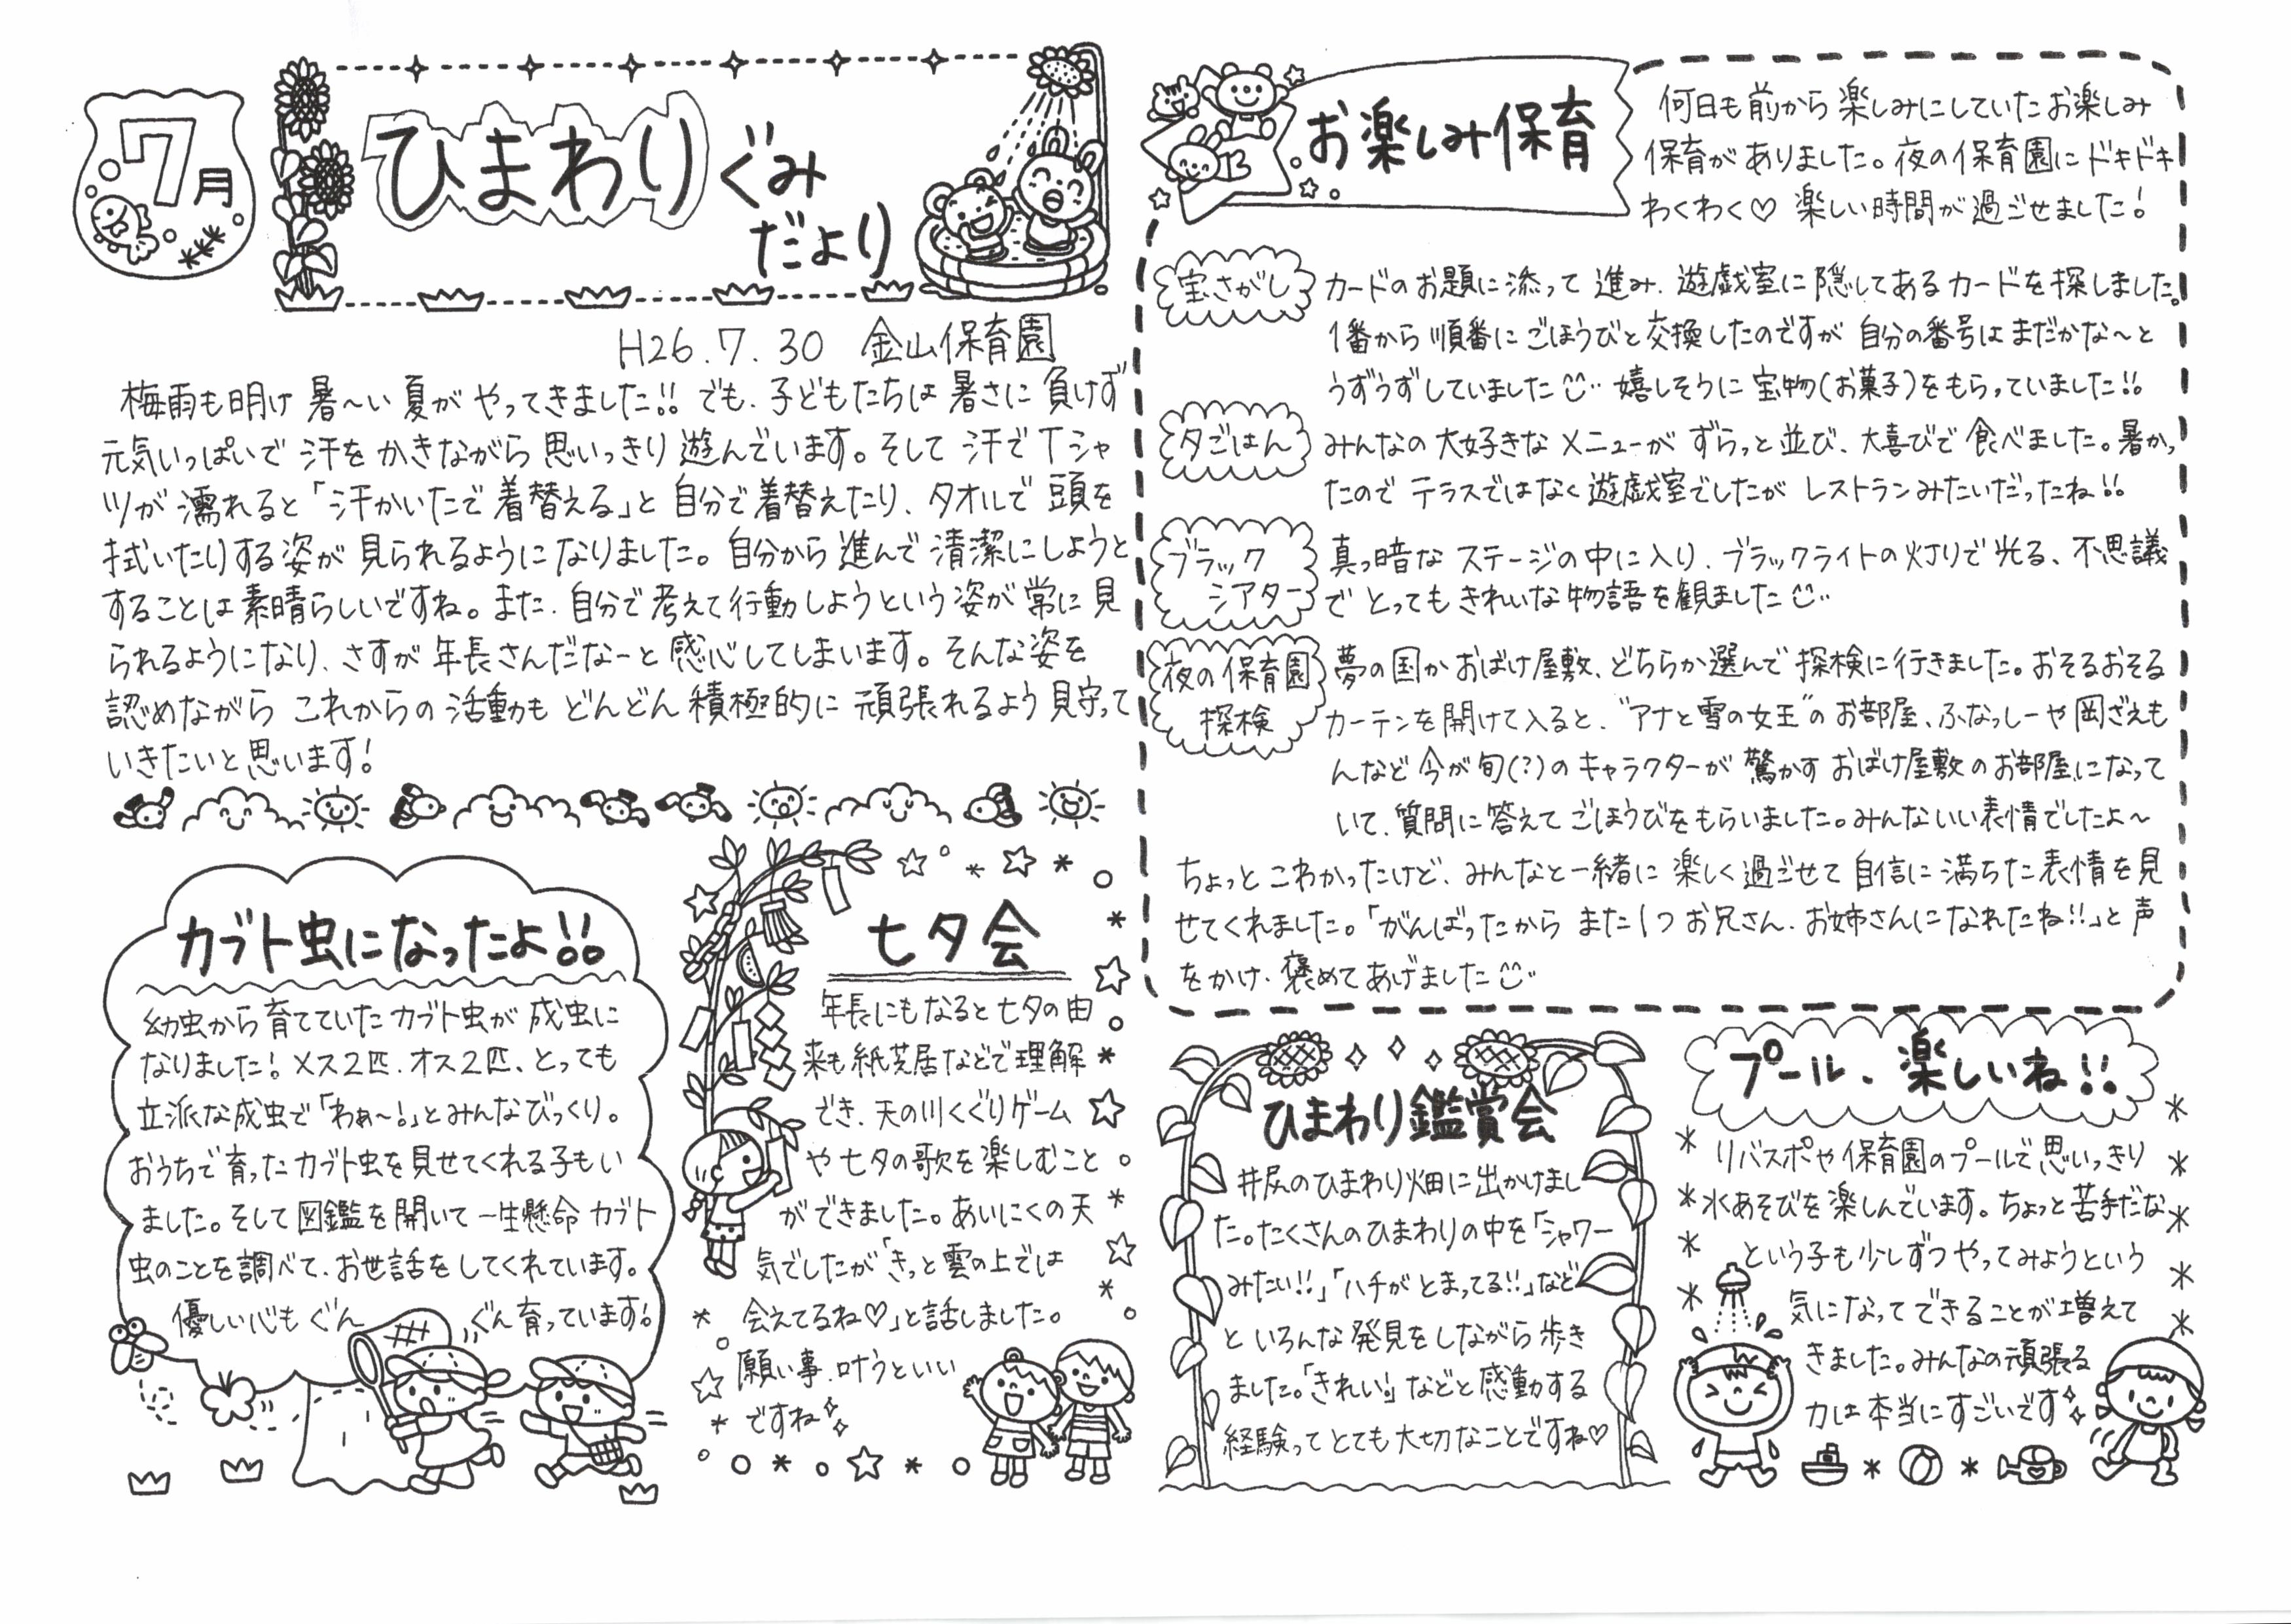 7月
ひまわりぐみ
だより
H26.7.30 金山保育園
梅雨も明け 暑〜い 夏が やってきました!! でも、子どもたちは 暑さに 負けず
元気いっぱいで 汗を かきながら 思いっきり 遊んでいます。そして 汗で Tシャ
ツが 濡れると「汗かいたで 着替える」と 自分で着替えたり、タオルで 頭を
拭いたりする 姿が 見られるようになりました。自分から 進んで 清潔にしようと
することは 素晴らしいですね。また、自分で考えて行動しようという姿が 常に見
られるようになり、さすが 年長さんだなーと 感心してしまいます。そんな姿を
認めながら これからの 活動も どんどん 積極的に 頑張れるよう 見守って
いきたいと思います!
カブト虫になったよ!!
幼虫から育てていたカブト虫が 成虫に
なりました!メス2匹、オス2匹、とっても
立派な成虫で「わぁ〜!」とみんなびっくり。
おうちで育ったカブト虫を見せてくれる子もい
ました。そして図鑑を開いて一生懸命 カブト
虫のことを調べて、お世話をしてくれています。
優しい心も ぐん ぐん育っています!
七夕会
年長にもなると七夕の由
来も紙芝居などで理解
でき、天の川くぐりゲーム
や七夕の歌を楽しむこと
ができました。あいにくの天
気でしたが「きっと雲の上では
会えてるね♡」と話しました。
願い事、叶うといい
ですね
お楽しみ保育
何日も前から楽しみにしていたお楽しみ
保育がありました。夜の保育園にドキドキ
わくわく♡ 楽しい時間が過ごせました!
宝さがし
カードのお題に添って 進み、遊戯室に隠してあるカードを探しました。
1番から順番に ごほうびと交換したのですが 自分の番号は まだかな〜と
うずうずしていました 嬉しそうに 宝物(お菓子)をもらっていました!!
夕ごはん
みんなの 大好きな メニューが ずらっと 並び、大喜びで 食べました。暑かっ
たので テラスではなく遊戯室でしたが レストランみたいだったね!!
ブラック
シアター
真っ暗な ステージの中に入り、ブラックライトの灯りで光る、不思議
で とっても きれいな物語を観ました
夜の保育園
探検
夢の国か おばけ屋敷、どちらか選んで 探検に行きました。おそるおそる
カーテンを開けて入ると、"アナと雪の女王"のお部屋、ふなっしーや岡ざえも
んなど今が旬(?)のキャラクターが 驚かす おばけ屋敷のお部屋になって
いて、質問に答えて ごほうびをもらいました。みんないい表情でしたよ〜
ちょっと こわかったけど、みんなと一緒に 楽しく過ごせて 自信に満ちた表情を見
せてくれました。「がんばったから また1つ お兄さん、お姉さんになれたね!!」と声
をかけ、褒めてあげました
ひまわり鑑賞会
井尻のひまわり畑に出かけまし
た。たくさんのひまわりの中を「シャワー
みたい!!」「ハチが とまってる!!」など
と いろんな 発見をしながら 歩き
ました。「きれい!」などと感動する
経験って とても大切なことですね♡
プール、楽しいね!!
リバスポや保育園のプールで思いっきり
水あそびを楽しんでいます。ちょっと苦手だな
という子も少しずつ やってみようという
気になって できることが増えて
きました。みんなの頑張る
力は 本当に すごいです